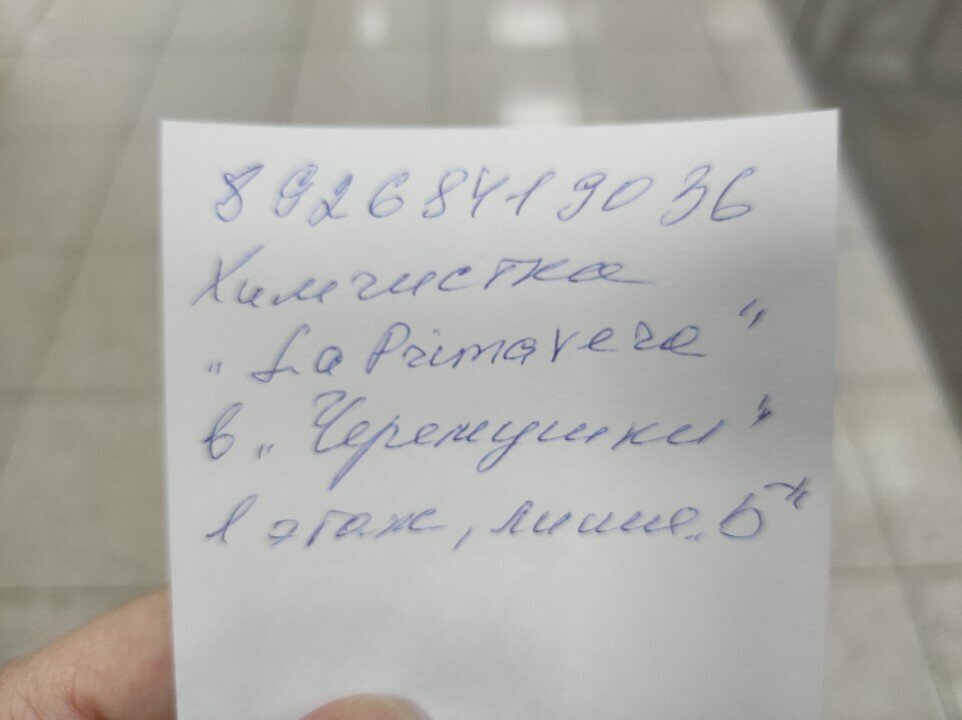 89268419036
Химчистка
"La Primavera"
в "Черемушки"
1 этаж, линия "Б"